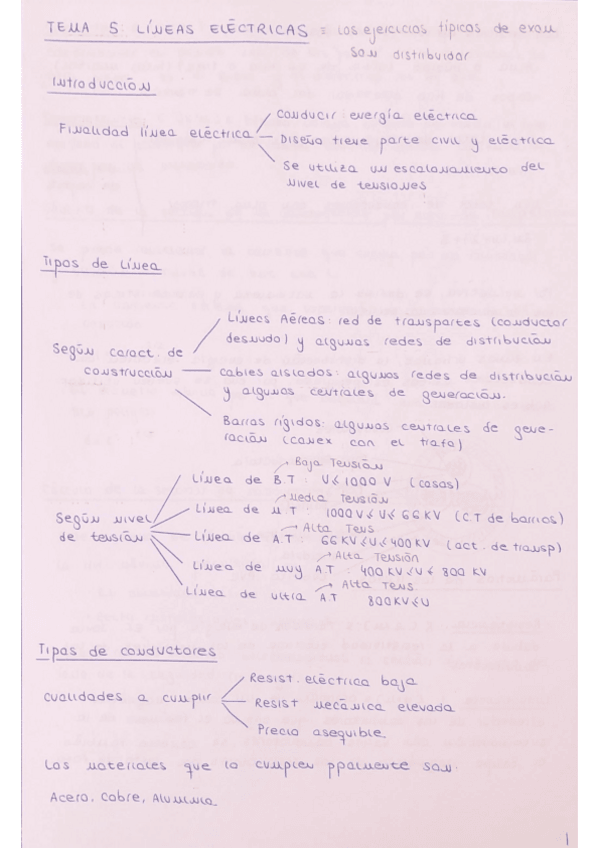 TEMA 5: LÍNEAS ELÉCTRICAS = los ejercicios típicos de exam
son distribuidor
Introducción
Finalidad línea eléctrica
Conducir energía eléctrica
Diseño tiene parte civil y eléctrica
Se utiliza un escalonamiento del
nivel de tensiones
Tipos de Línea
Según caract. de
construcción
Líneas Aéreas: red de transportes (conductor
desnudo) y algunas redes de distribución
cables aislados: algunas redes de distribución
y algunas centrales de generación.
Barras rígidas: algunas centrales de gene-
ración (conex con el trafo)
Según nivel
de tensión
Baja Tensión
Línea de B.T : U≤1000 V (casas)
Media Tensión
Línea de M.T : 1000V≤U≤66KV (C.T de barrios)
Alta Tens
Línea de A.T : 66KV≤U≤400KV (act. de transp)
Alta Tensión
Línea de muy A.T : 400KV≤U≤800KV
Alta Tens
Línea de ultra A.T 800KV≤U
Tipos de conductores
cualidades a cumplir
Resist. eléctrica baja
Resist mecánica elevada
Precio asequible.
Los materiales que lo cumplen ppalmente son:
Acero, Cobre, Aluminio.
1